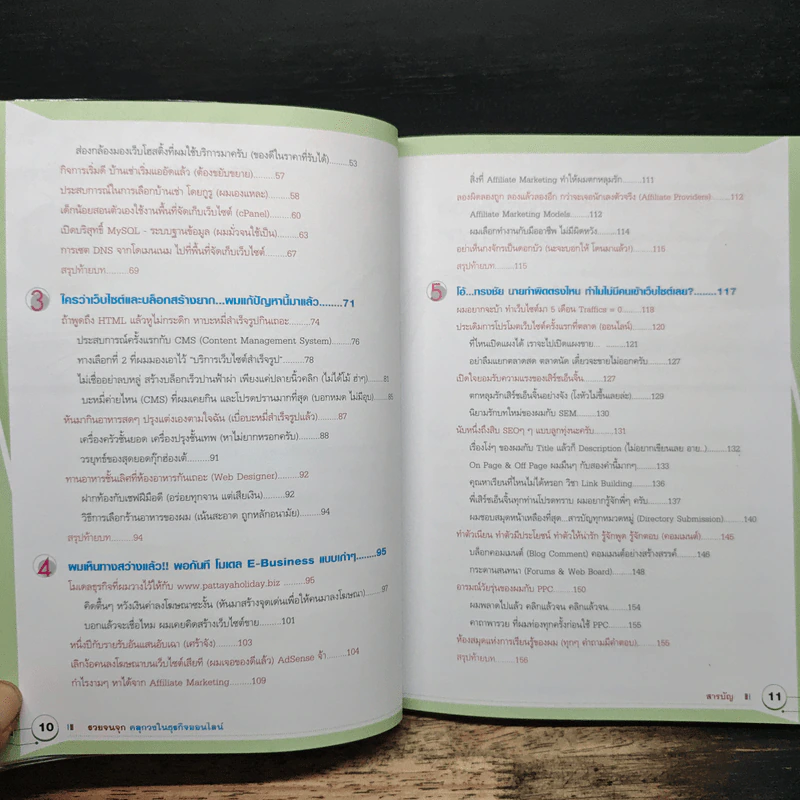 ส่องกล้องมองเว็บโฮสติ้งที่ผมใช้บริการมาครับ (ของดีในราคาที่รับได้)........53
กิจการเริ่มดี บ้านเช่าเริ่มแออัดแล้ว (ต้องขยับขยาย)........57
ประสบการณ์ในการเลือกบ้านเช่า โดยกูรู (ผมเองแหละ)........58
เด็กน้อยสอนตัวเองใช้งานพื้นที่จัดเก็บเว็บไซต์ (cPanel)........60
เปิดบริสุทธิ์ MySQL - ระบบฐานข้อมูล (ผมมั่วจนใช้เป็น)........63
การเซต DNS จากโดเมนเนม ไปที่พื้นที่จัดเก็บเว็บไซต์........67
สรุปท้ายบท........69
3 ใครว่าเว็บไซต์และบล็อกสร้างยาก...ผมแก้ปัญหานี้มาแล้ว........71
ถ้าพูดถึง HTML แล้วหูไม่กระดิก หาบะหมี่สำเร็จรูปกินเถอะ........74
ประสบการณ์ครั้งแรกกับ CMS (Content Management System)........76
ทางเลือกที่ 2 ที่ผมมองเอาไว้ "บริการเว็บไซต์สำเร็จรูป"........78
ไม่เชื่ออย่าลบหลู่ สร้างบล็อกเร็วปานฟ้าผ่า เพียงแค่ปลายนิ้วคลิก (ไม่ได้โม้ ฮ่าๆ)
บะหมี่ค่ายไหน (CMS) ที่ผมเคยกิน และโปรดปรานมากที่สุด (บอกหมด ไม่มีอุบ)
หันมากินอาหารสดๆ ปรุงแต่งเองตามใจฉัน (เบื่อบะหมี่สำเร็จรูปแล้ว)........87
เครื่องครัวชั้นยอด เครื่องปรุงชั้นเทพ (หาไม่ยากหรอกครับ)........88
วรยุทธ์ของสุดยอดกุ๊กฮ่องเต้........91
ทานอาหารชั้นเลิศที่ห้องอาหารกันเถอะ (Web Designer)........92
ฝากท้องกับเชฟฝีมือดี (อร่อยทุกจาน แต่เสียเงิน)........92
วิธีการเลือกร้านอาหารของผม (เน้นสะอาด ถูกหลักอนามัย)........94
สรุปท้ายบท........94
4 ผมเห็นทางสว่างแล้ว!! พอกันที โมเดล E-Business แบบเก่าๆ........95
โมเดลธุรกิจที่ผมวางไว้ให้กับ www.pattayaholiday.biz ........95
คิดตื้นๆ หวังเงินค่าลงโฆษณาซะงั้น (หันมาสร้างจุดเด่นเพื่อให้คนมาลงโฆษณา)........97
บอกแล้วจะเชื่อไหม ผมเคยคิดสร้างเว็บไซต์ขาย........101
หนึ่งปีกับรายรับอันแสนอับเฉา (เศร้าจัง)........103
เลิกง้อคนลงโฆษณาบนเว็บไซต์เสียที (ผมเจอของดีแล้ว) AdSense จ้า........104
กำไรงามๆ หาได้จาก Affiliate Marketing........109
10 รวยจนจุก คลุกวงในธุรกิจออนไลน์
สิ่งที่ Affiliate Marketing ทำให้ผมตกหลุมรัก........111
ลองผิดลองถูก ลองแล้วลองอีก กว่าจะเจอนักเลงตัวจริง (Affiliate Providers)........112
Affiliate Marketing Models........112
ผมเลือกทำงานกับมืออาชีพ ไม่มีผิดหวัง........114
อย่าเห็นกงจักรเป็นดอกบัว (นะจะบอกให้ โดนมาแล้ว!)........115
สรุปท้ายบท........115
5 โอ้...ทรงชัย นายทำผิดตรงไหน ทำไมไม่มีคนเข้าเว็บไซต์เลย?........117
ผมอยากจะบ้า ทำเว็บไซต์มา 5 เดือน Traffics = 0........119
ประเดิมการโปรโมตเว็บไซต์ครั้งแรกที่ตลาด (ออนไลน์)........120
ที่ไหนเปิดแผงได้ เราจะไปเปิดแผงขาย... ........121
อย่าลืมแยกตลาดสด ตลาดนัด เดี๋ยวจะขายไม่ออกครับ........127
เปิดใจยอมรับความแรงของเสิร์ชเอ็นจิ้น........127
ตกหลุมรักเสิร์ชเอ็นจิ้นอย่างจัง (โงหัวไม่ขึ้นเลยล่ะ)........129
นิยามรักบทใหม่ของผมกับ SEM........130
นับหนึ่งถึงสิบ SEOๆ ๆ แบบลูกทุ่งนะครับ........131
เรื่องโง่ๆ ของผมกับ Title แล้วก็ Description (ไม่อยากเขียนเลย อาย..)........132
On Page & Off Page ผมมึนๆ กับสองคำนี้มากๆ........133
คุณหาเรียนที่ไหนไม่ได้หรอก วิชา Link Building........136
พี่เสิร์ชเอ็นจิ้นทุกท่านโปรดทราบ ผมอยากรู้จักพี่ๆ ครับ........137
ผมชอบสมุดหน้าเหลืองที่สุด...สารบัญทุกหมวดหมู่ (Directory Submission)........140
ทำตัวเนียน ทำตัวมีประโยชน์ ทำตัวให้น่ารัก รู้จักพูด รู้จักตอบ (คอมเมนต์)........145
บล็อกคอมเมนต์ (Blog Comment) คอมเมนต์อย่างสร้างสรรค์........146
กระดานสนทนา (Forums & Web Board)........148
อารมณ์วัยรุ่นของผมกับ PPC........150
ผมพลาดไปแล้ว คลิกแล้วจน คลิกแล้วจน........154
คาถาพารวย ที่ผมท่องทุกครั้งก่อนใช้ PPC........155
ห้องสมุดแห่งการเรียนรู้ของผม (ทุกๆ คำถามมีคำตอบ)........155
สรุปท้ายบท........156
สารบัญ 11